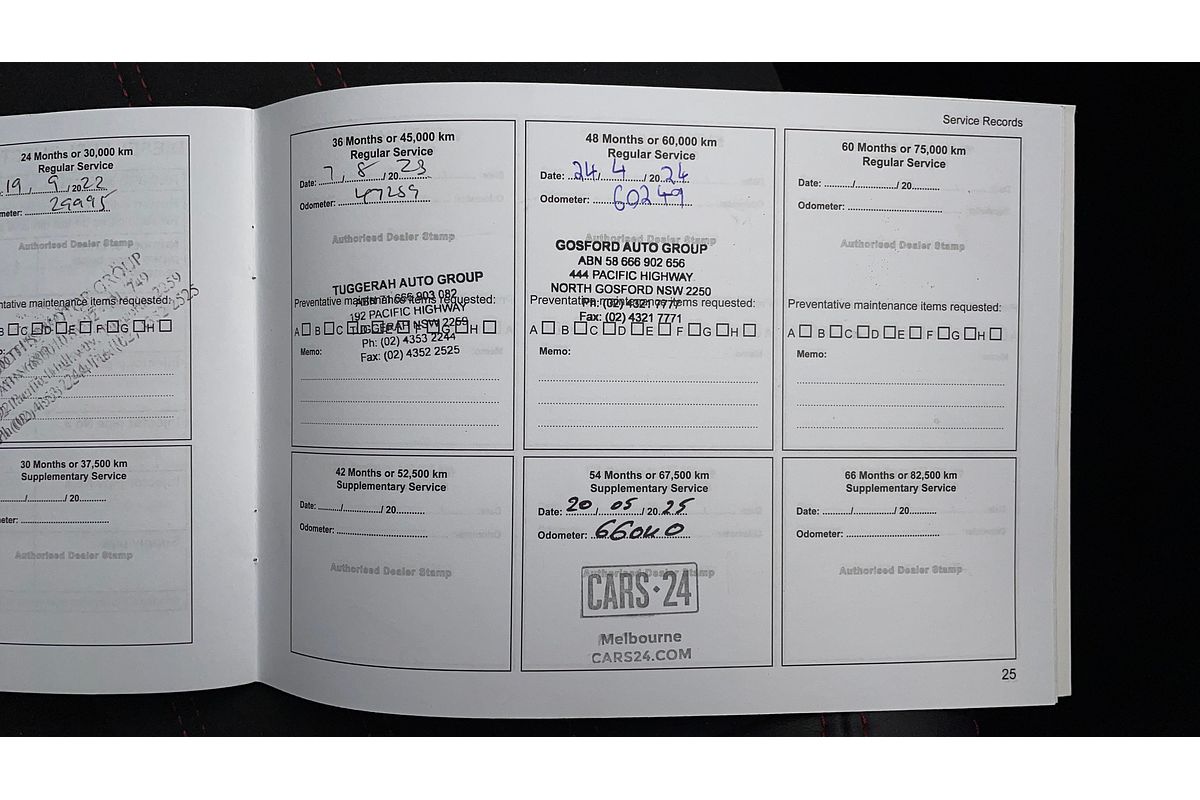 Service Records
24 Months or 30,000 km
Regular Service
19 / 9 / 20 22
29995
Authorised Dealer Stamp
ntative maintenance items requested:
B C D E F G H
30 Months or 37,500 km
Supplementary Service
/ / 20
eter:
Authorised Dealer Stamp
36 Months or 45,000 km
Regular Service
Date: 7 / 8 / 20 23
Odometer: 47259
Authorised Dealer Stamp
TUGGERAH AUTO GROUP
Preventative maintenance items requested:
ABN 71 666 903 082
192 PACIFIC HIGHWAY
A B C D E F G H
TUGGERAH NSW 2259
Ph: (02) 4353 2244
Memo:
Fax: (02) 4352 2525
42 Months or 52,500 km
Supplementary Service
Date: / / 20
Odometer:
Authorised Dealer Stamp
48 Months or 60,000 km
Regular Service
Date: 24 / 4 / 20 24
Odometer: 60249
Authorised Dealer Stamp
GOSFORD AUTO GROUP
ABN 58 666 902 656
444 PACIFIC HIGHWAY
NORTH GOSFORD NSW 2250
Preventative maintenance items requested:
Ph: (02) 4321 7771
Fax: (02) 4321 7771
A B C D E F G H
Memo:
54 Months or 67,500 km
Supplementary Service
Date: 20 / 05 / 20 25
Odometer: 66040
Authorised Dealer Stamp
CARS·24
Melbourne
CARS24.COM
60 Months or 75,000 km
Regular Service
Date: / / 20
Odometer:
Authorised Dealer Stamp
Preventative maintenance items requested:
A B C D E F G H
Memo:
66 Months or 82,500 km
Supplementary Service
Date: / / 20
Odometer:
Authorised Dealer Stamp
25